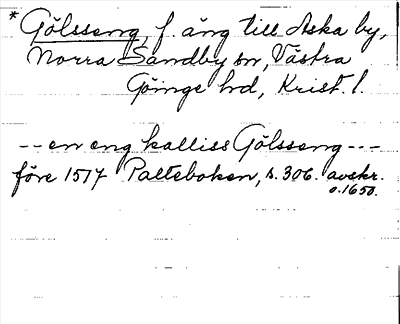 * Gölsseng, f. äng till Aska by,
Norra Sandby sn, Västra
Göinge hd, Krist. l.
-- en eng kalliss Gölsseng ---
före 1517 Palteboken, s. 306. avskr.
o. 1650.